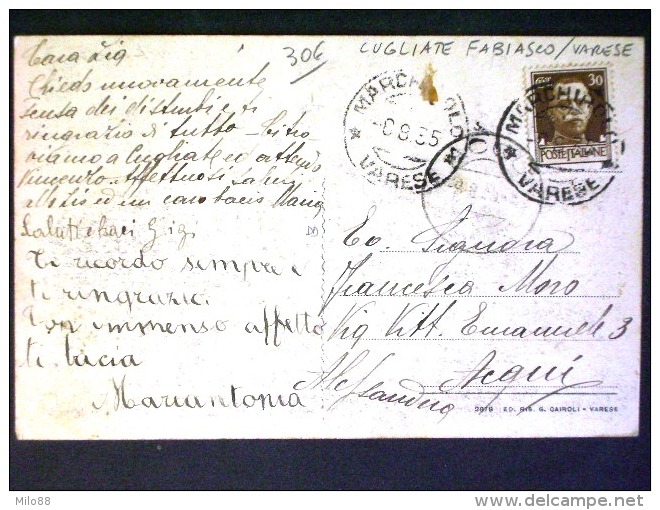 30€
CUGLIATE FABIASCO/VARESE
Cara Zia
Chiedo nuovamente
scusa dei disturbi e ti
ringrazio di tutto
a Cugliate ed attendo
Vincenzo. Affettuosi
ed un caro bacio
Saluti e baci Gigi
Ti ricordo sempre e
ti ringrazio.
Con immenso affetto
ti bacia
Mariantonia
MARCHIROLO
8.35
* VARESE *
30
POSTE ITALIANE
MARCHIROLO
* VARESE
Signora
Francesca Moro
Via Vitt. Emanuele 3
Acqui
Alessandria
2878 ED. RIS. G. CAIROLI - VARESE
Milo88
delcampe.net